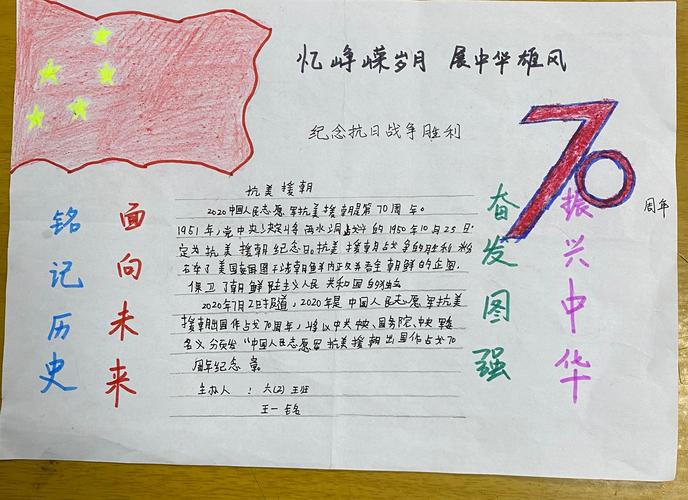 忆峥嵘岁月 展中华雄风
纪念抗日战争胜利
70周年
铭记历史
面向未来
抗美援朝
2020中国人民志愿军抗美援朝是第70周年。
1951年,党中央决定将 的1950年10月25日
定为抗美援朝纪念日。抗美援朝战争的胜利 粉
碎了美国 集团干涉朝鲜内政 并吞全朝鲜的企图,
保卫了朝鲜 主义人民共和国的独立
2020年7月2日报道,2020年是中国人民志愿军抗美
援朝出国作战70周年,将以中共中央、国务院、中央军委
名义 颁发“中国人民志愿军抗美援朝出国作战70
周年纪念章。
主办人:六(2)班
王一
奋发图强
振兴中华